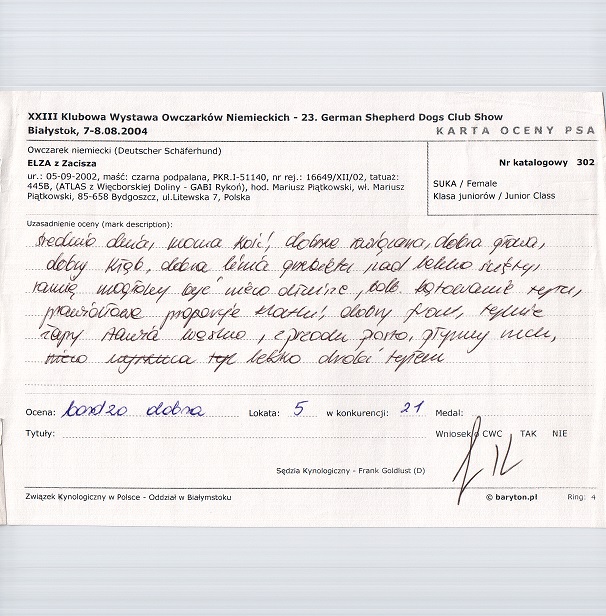 XXIII Klubowa Wystawa Owczarków Niemieckich - 23. German Shepherd Dogs Club Show
Białystok, 7-8.08.2004
KARTA OCENY PSA
Owczarek niemiecki (Deutscher Schäferhund)
ELZA z Zacisza
ur.: 05-09-2002, maść: czarna podpalana, PKR.I-51140, nr rej.: 16649/XII/02, tatuaż:
445B, (ATLAS z Więcborskiej Doliny - GABI Rykoń), hod. Mariusz Piątkowski, wł. Mariusz
Piątkowski, 85-658 Bydgoszcz, ul.Litewska 7, Polska
Nr katalogowy 302
SUKA / Female
Klasa juniorów / Junior Class
Uzasadnienie oceny (mark description):
średnio duża, mocna kość, dobrze związana, dobra głowa,
dobry kłąb, dobra linia grzbietu, zad lekko ścięty,
ramię mogłoby być nieco dłuższe, kątowanie tyłu,
prawidłowe proporcje klatki, dobry front,
łapy stawia wąsko, z przodu prosto, płynny ruch,
nieco lekko drobi tyłem
Ocena: bardzo dobra Lokata: 5 w konkurencji: 21 Medal:
Tytuły: Wniosek o CWC TAK NIE
Sędzia Kynologiczny - Frank Goldlust (D)
Związek Kynologiczny w Polsce - Oddział w Białymstoku © baryton.pl Ring: 4